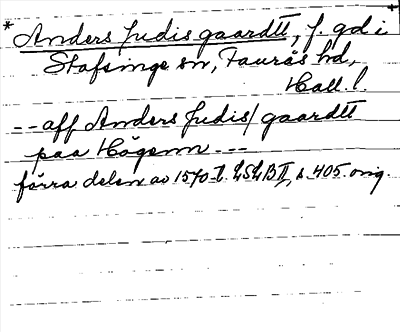 * Anders Judis gaardtt, f. gd i +
Stafsinge sn, Faurås hd,
Hall. l.
-- aff Anders Judis/gaardtt
paa Högenn ---
förra delen av 1570-t. LSLB II, s. 405. orig.